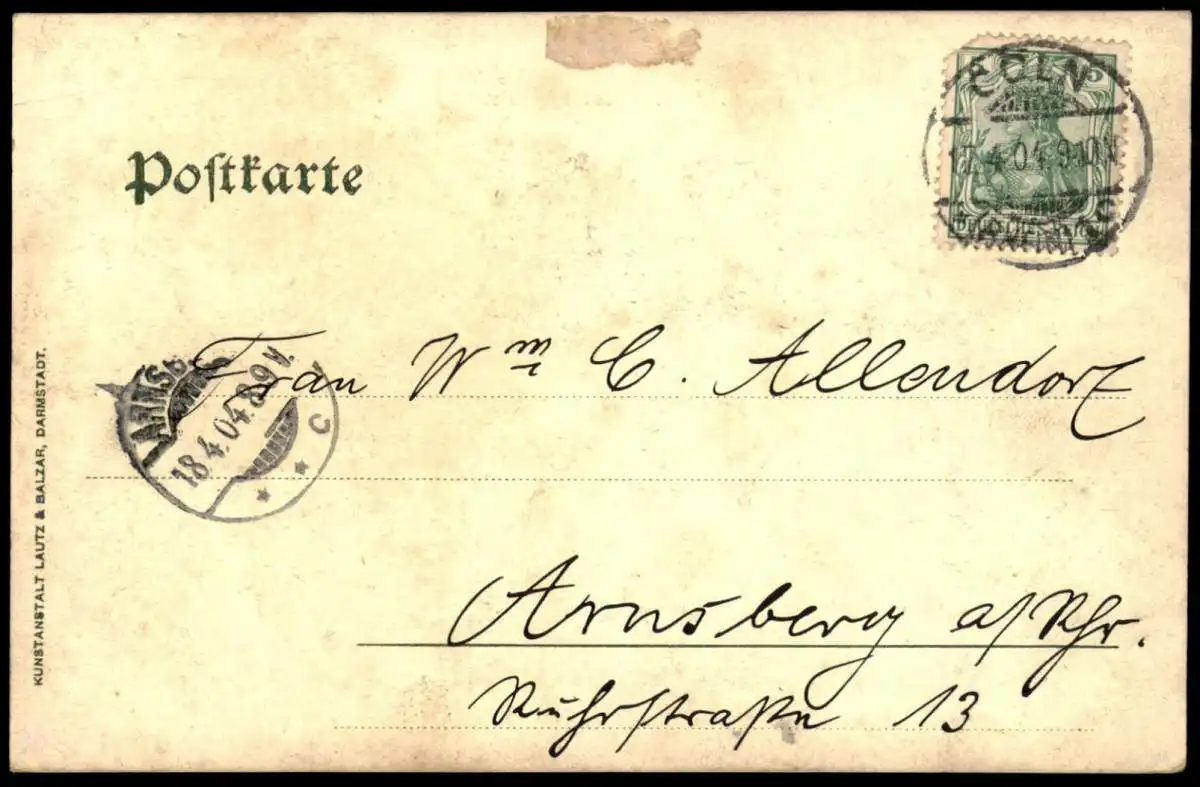 Postkarte
CÖLN
5
17.4.04.9-10V.
DEUTSCHES REICH
Frau Wm C. Allendorf
ARNSB
18.4.04.8-9V.
C
Arnsberg a/Rhr.
Ruhrstraße 13
KUNSTANSTALT LAUTZ & BALZAR, DARMSTADT.